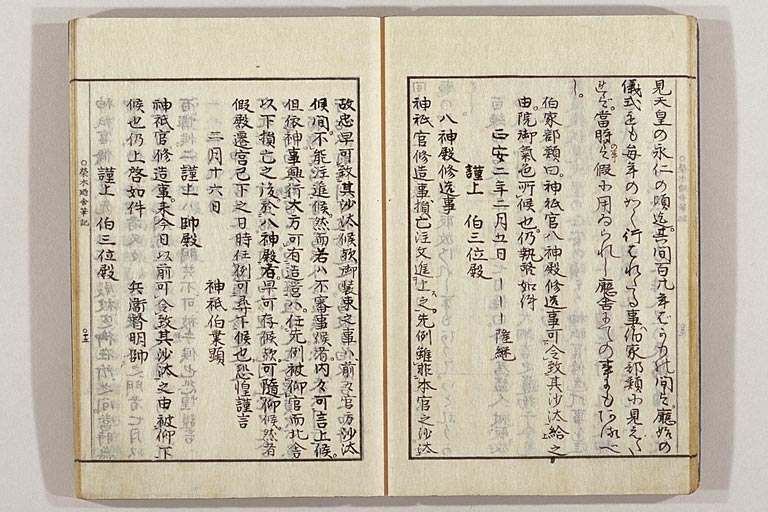 見天皇の永仁の頃迄。其間百九年ばかりの間は。廳始の
儀式をも毎年のかく行はれたる事。伯家部類に見えたり
されば當時は假に用ゐられし廳舎にての事にもあるべ
し。
伯家部類曰。神祇官八神殿修造事。可令致其沙汰給之
由。院御氣色所候也。仍執啓如件
正安二年二月五日 隆繼
謹上 伯三位殿
八神殿修造事
神祇官修造事。損亡注文進上之。先例雖非本官之沙汰
故忠早可致其沙汰候歟。御裝束之事ハ。前々官方沙汰
候間。不能注進候。然而若ハ不審事候者。内々可言上候。
但依神事興行大方可有造營ハ。任先例被仰官而北舎
以下損亡之後。於八神殿者。早可存候歟。可隨仰候。然者
假殿遷宮已下之日時任例可尋下候也。恐惶謹言
二月十六日 神祇伯業顯
謹上 帥殿
神祇官修造事。來今日以前可令致其沙汰之由被仰下
候也。仍上啓如件 兵衞督明帥
謹上 伯三位殿